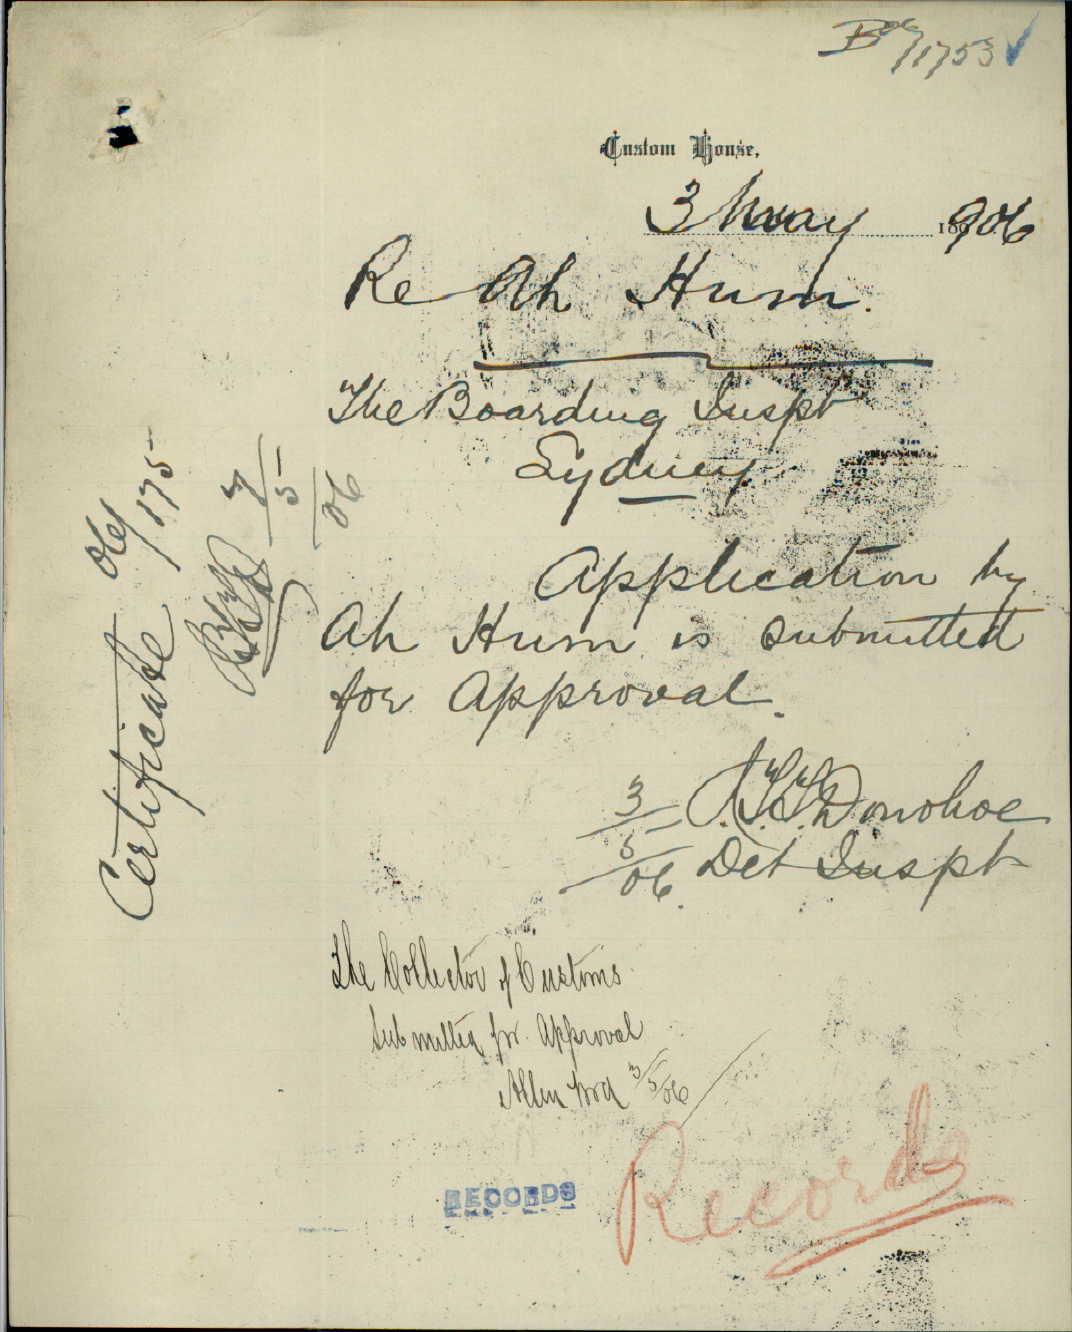 B06/1753
Custom House,
3 May 1906
Re Ah Hum.
The Boarding Inspt
Sydney.
Application by
Ah Hum is submitted
for Approval.
Donohoe
Det Inspt
3/5/06.
The Collector of Customs
Submitted for Approval
3/5/06
RECORDS
Records
Certificate 06/175
3/5/06